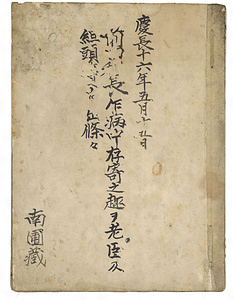 慶長十六年五月十五日
長乍病中存寄之趣ヲ老臣及
組頭
條々
南圃藏